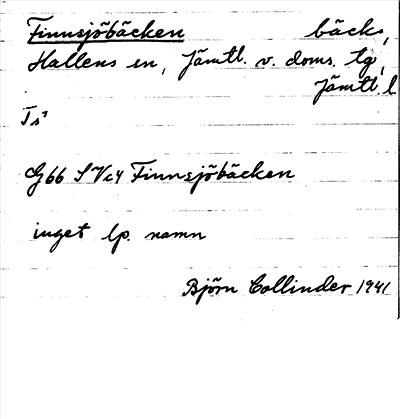 Finnsjöbäcken bäck,
Hallens sn, Jämtl. v. doms. tg,
Jämtl. l
G66 SVc4 Finnsjöbäcken
inget lp. namn
Björn Collinder 1941